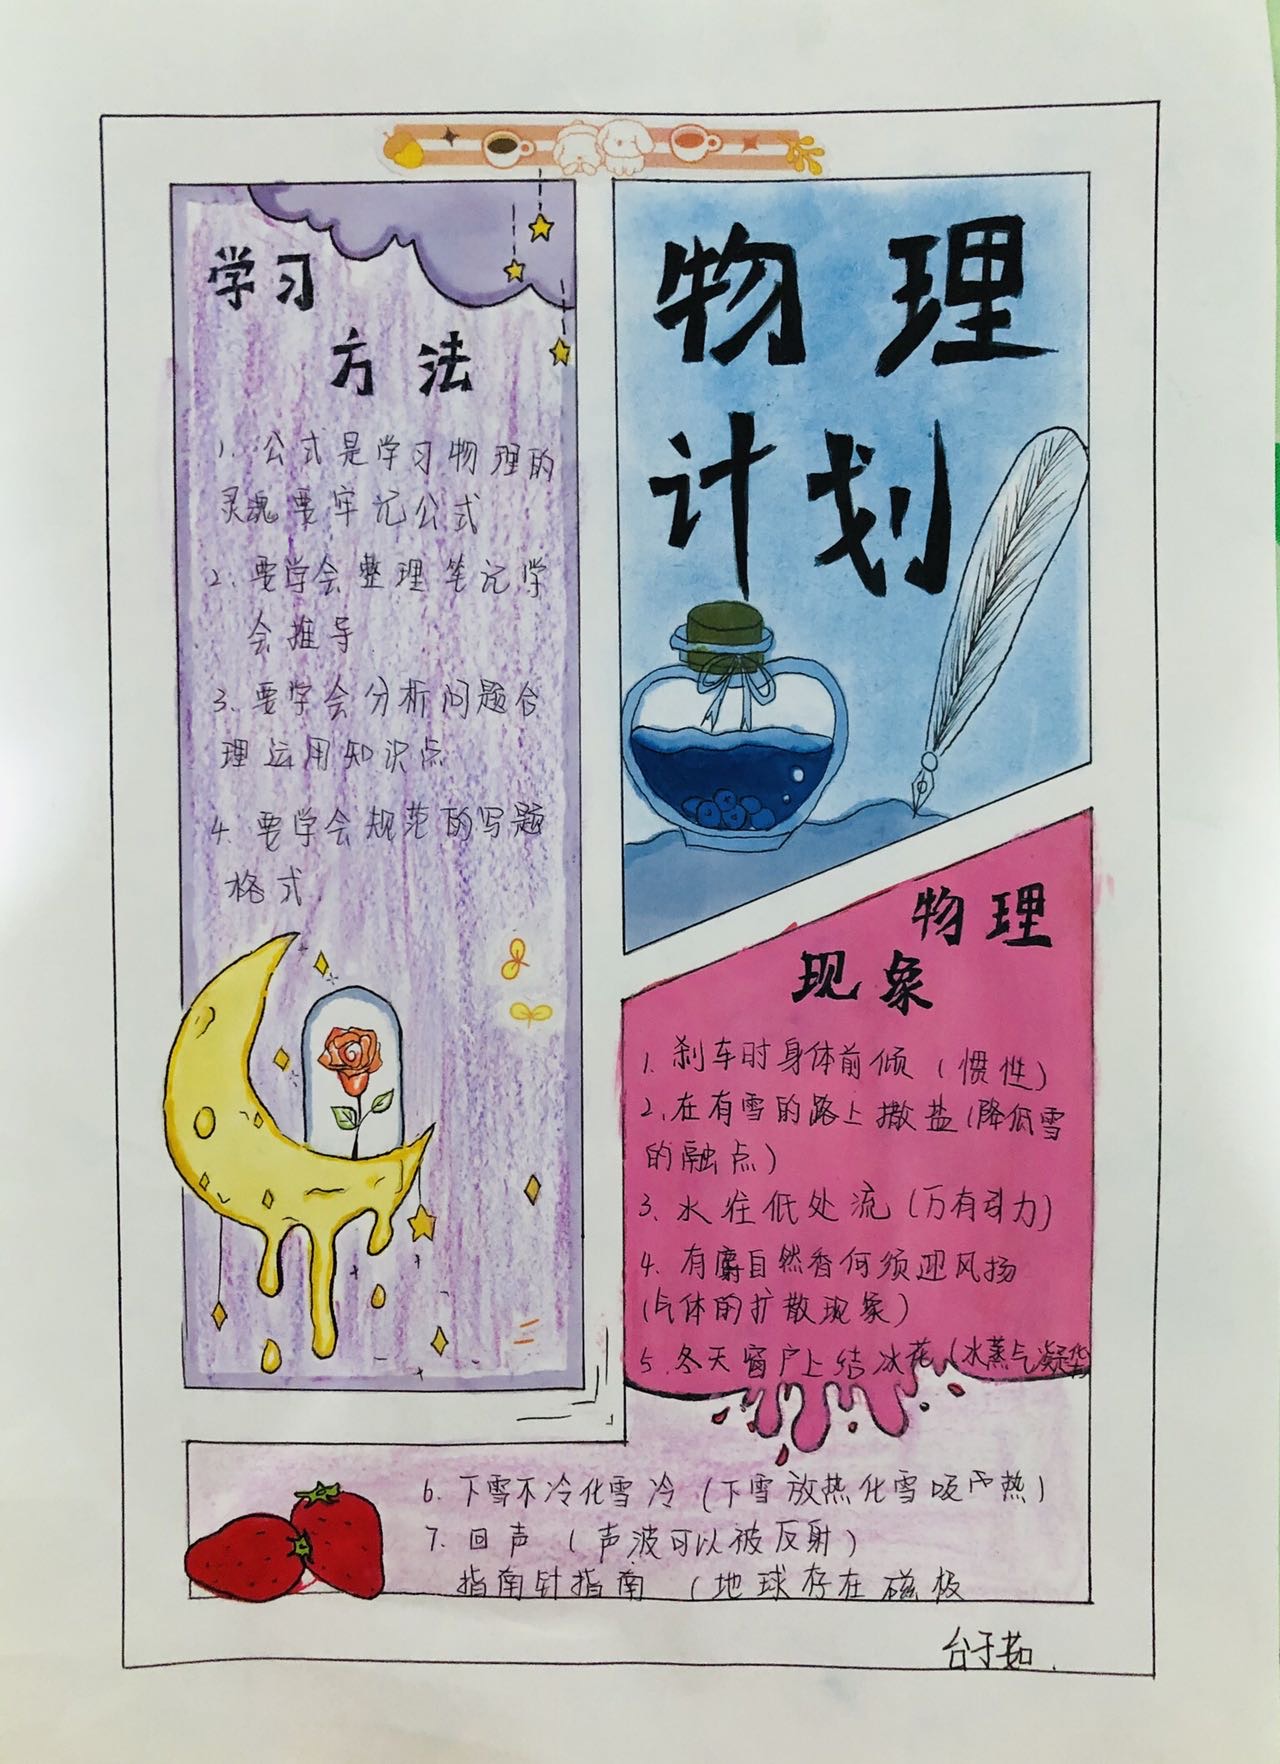 物理
计划
学习
方法
1. 公式是学习物理的
灵魂要牢记公式
2. 要学会整理笔记学
会推导
3. 要学会分析问题合
理运用知识点
4. 要学会规范的写题
格式
物理
现象
1. 刹车时身体前倾(惯性)
2. 在有雪的路上撒盐(降低雪
的融点)
3. 水往低处流(万有引力)
4. 有麝自然香何须迎风扬
(气体的扩散现象)
5. 冬天窗户上结冰花(水蒸气凝华
6. 下雪不冷化雪冷(下雪放热化雪吸热)
7. 回声(声波可以被反射)
指南针指南(地球存在磁极
台于茹